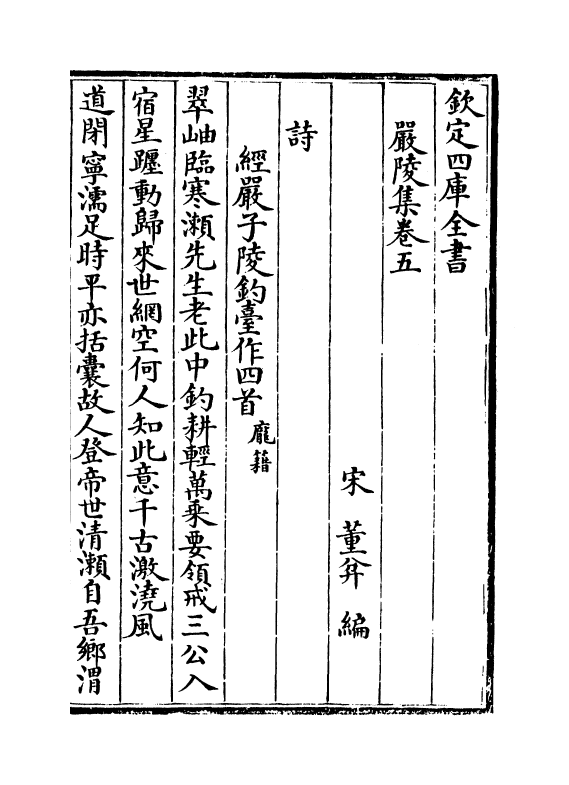 欽定四庫全書
嚴陵集卷五
宋 董弅 編
詩
經嚴子陵釣臺作四首 龐籍
翠岫臨寒瀬先生老此中釣耕輕萬乗要領戒三公入
宿星躔動歸來世網空何人知此意千古激澆風
道閉寧濡足時平亦括囊故人登帝世清瀬自吾鄉渭